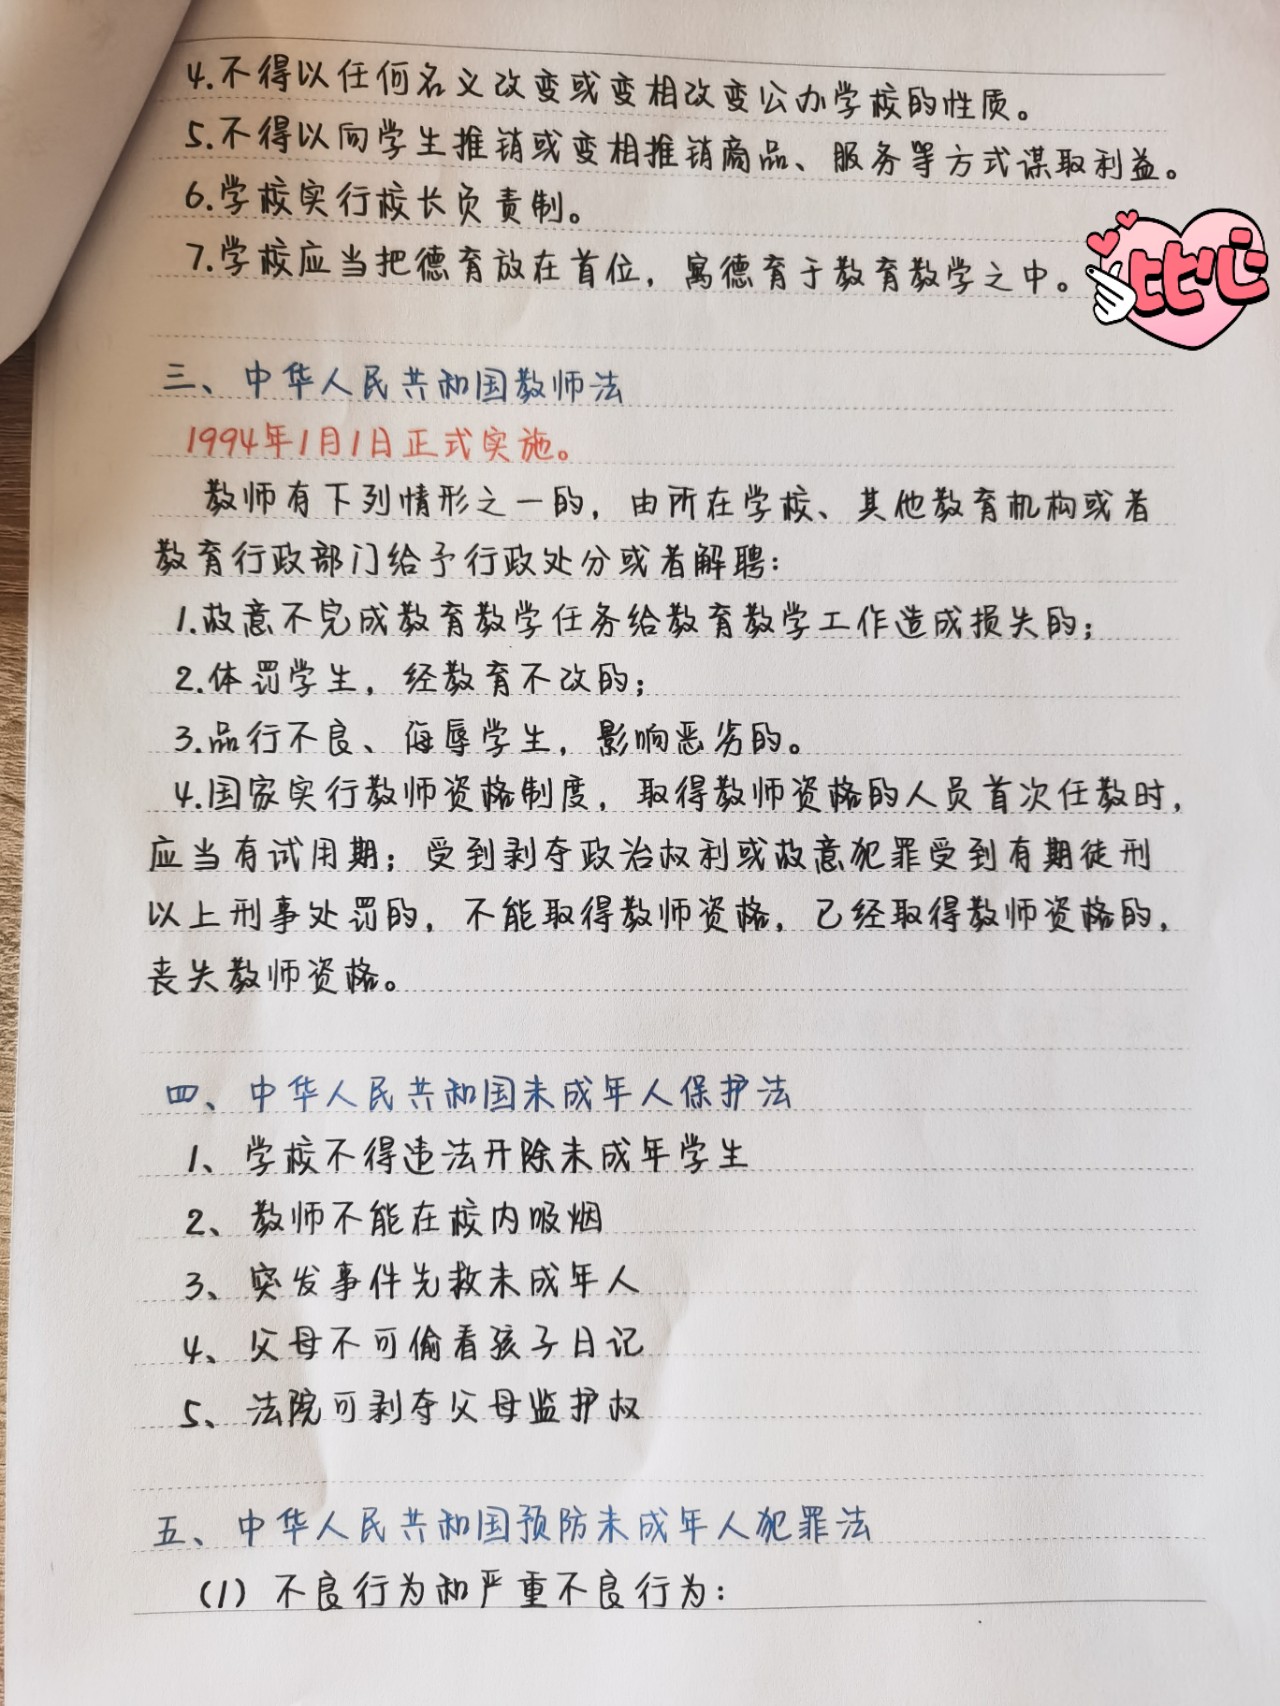 4.不得以任何名义改变或变相改变公办学校的性质。
5.不得以向学生推销或变相推销商品、服务等方式谋取利益。
6.学校实行校长负责制。
7.学校应当把德育放在首位，寓德育于教育教学之中。
比心
三、中华人民共和国教师法
1994年1月1日正式实施。
教师有下列情形之一的，由所在学校、其他教育机构或者
教育行政部门给予行政处分或者解聘：
1.故意不完成教育教学任务给教育教学工作造成损失的；
2.体罚学生，经教育不改的；
3.品行不良、侮辱学生，影响恶劣的。
4.国家实行教师资格制度，取得教师资格的人员首次任教时，
应当有试用期；受到剥夺政治权利或故意犯罪受到有期徒刑
以上刑事处罚的，不能取得教师资格，已经取得教师资格的，
丧失教师资格。
四、中华人民共和国未成年人保护法
1、学校不得违法开除未成年学生
2、教师不能在校内吸烟
3、突发事件先救未成年人
4、父母不可偷看孩子日记
5、法院可剥夺父母监护权
五、中华人民共和国预防未成年人犯罪法
(1)不良行为和严重不良行为：